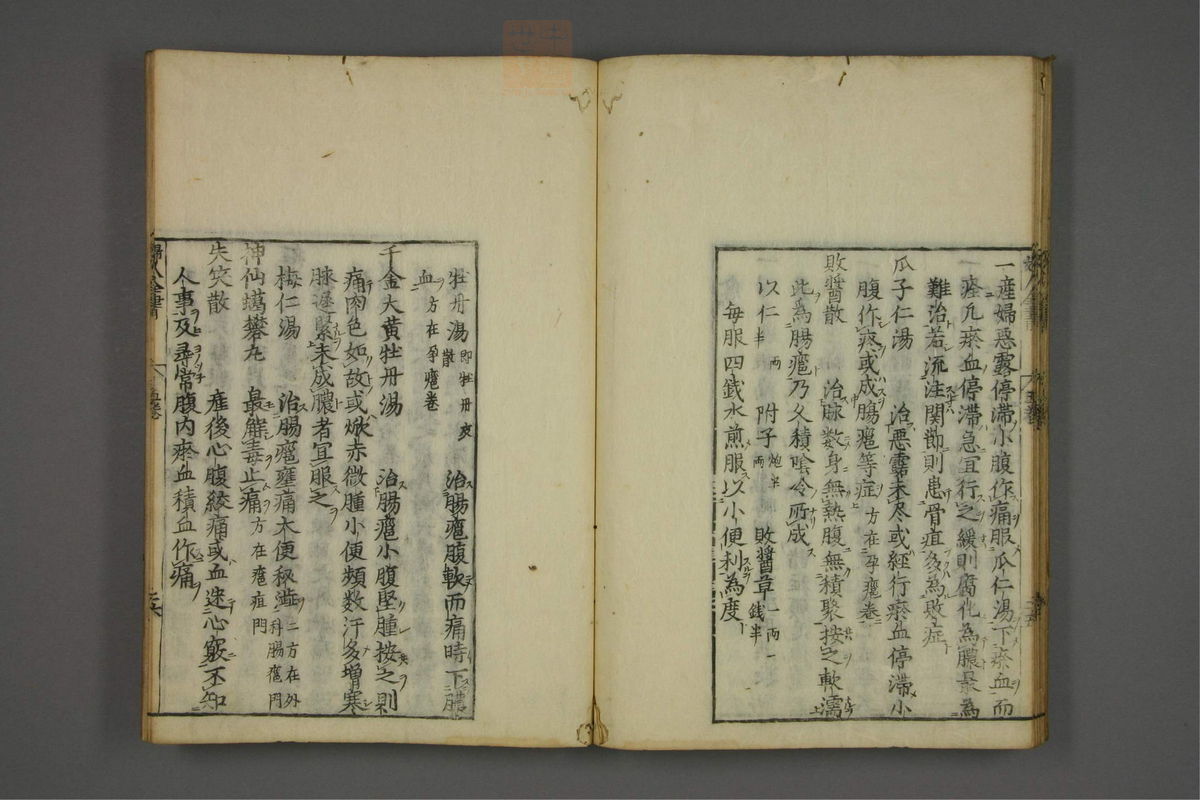 一産婦惡露停滞小腹作痛服瓜仁湯下瘀血而
痊凡瘀血停滞急宜行之緩則腐化為膿最為
難治若流注関節則患骨疽多為敗症
瓜子仁湯 治惡露未尽或経行瘀血停滞小
腹作疼或成腸癰等症 方在孕癰巻
敗醬散 治脉数身無熱腹無積聚按之軟濡
此爲腸癰乃久積陰冷所成
以仁半両 附子炮半両 敗醬草一両一銭半
每服四銭水煎服以小便利為度
牡丹湯即牡丹皮散 治腸癰腹軟而痛時下膿
血方在孕癰巻
千金大黄牡丹湯 治腸癰小腹堅腫按之則
痛肉色如故或焮赤微腫小便頻数汗多増寒
脉遲緊未成膿者宜服之
梅仁湯 治腸癰壅痛大便秘澁二方在外科腸癰門
神仙蠟礬丸 最解毒止痛方在癰疽門
失笑散 産後心腹絞痛或血迷心竅不知
人事及尋常腹内瘀血積血作痛